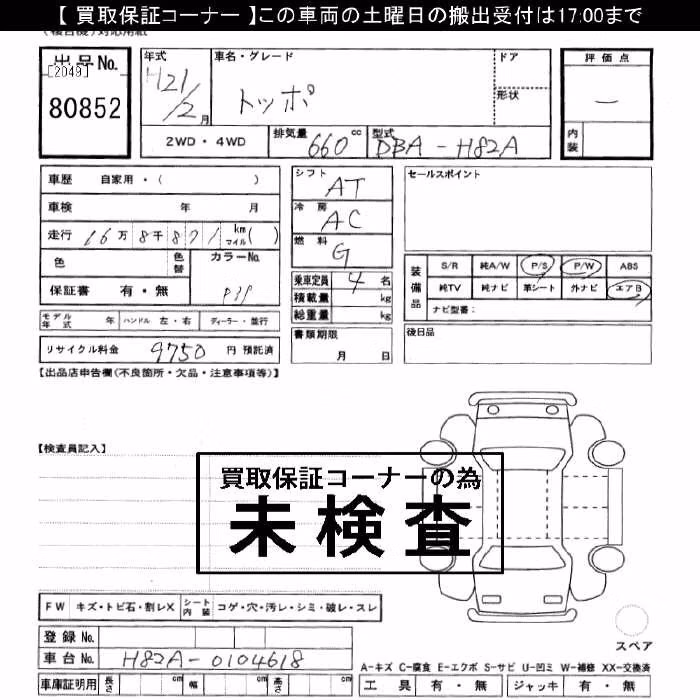 【 買取保証コーナー 】この車両の土曜日の搬出受付は17:00まで
出品No.
[2049]
80852
年式 H21/2月
車名・グレード
トッポ
ドア
形状
評価点
一
内装
2WD・4WD
排気量 660 cc
型式 DBA-H82A
車歴 自家用・( )
車検 年 月
走行 16万8千871 km マイル( )
色 色替 カラーNo.
保証書 有・無 P3P
モデル年式 年 ハンドル 左・右 ディーラー・並行
リサイクル料金 9750 円 預託済
シフト AT
冷房 AC
燃料 G
乗車定員 4 名
積載量 kg
総重量 kg
書類期限 月 日
セールスポイント
装備品
S/R 純A/W P/S P/W ABS
純TV 純ナビ 革シート 外ナビ エアB
ナビ型番:
後日品
【出品店申告欄(不良箇所・欠品・注意事項等)】
【検査員記入】
買取保証コーナーの為
未検査
FW キズ・トビ石・割レX シート内装 コゲ・穴・汚レ・シミ・破レ・スレ
登録 No.
車台 No. H82A-0104618
車庫証明用 長さ cm 幅 cm 高さ cm
スペア
A-キズ C-腐食 E-エクボ S-サビ U-凹ミ W-補修 XX-交換済
工具 有・無 ジャッキ 有・無